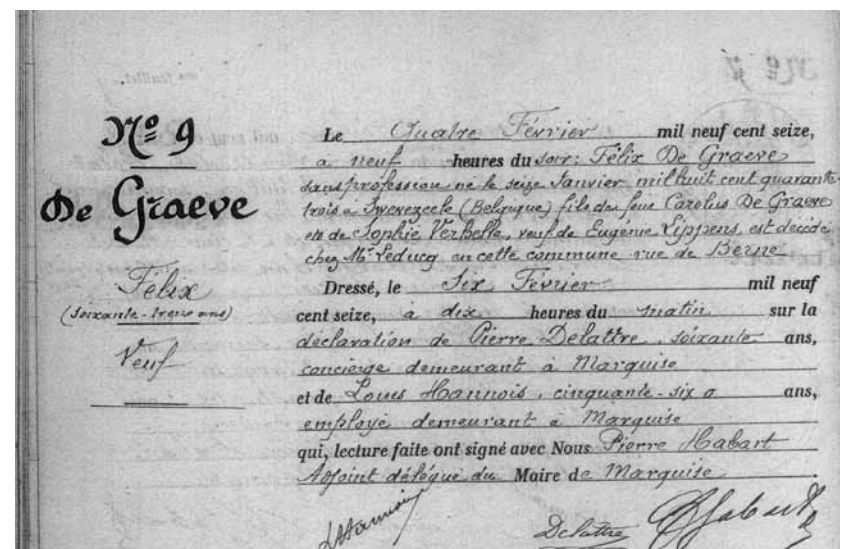 Nº 9
De Graeve
Félix
(Soixante-treize ans)
Veuf
Le Quatre Février mil neuf cent seize,
à neuf heures du soir: Félix De Graeve
sans profession né le seize Janvier mil huit cent quarante
trois à (Belgique) fils de feus Carolus De Graeve
et de Sophie Verbelle, veuf de Eugénie Lippens, est décédé
chez Mr Leducq en cette commune rue de Berne
Dressé, le Six Février mil neuf
cent seize, à dix heures du matin sur la
déclaration de Pierre Delattre, soixante ans,
concierge demeurant à Marquise
et de Louis Hannois, cinquante-six ans,
employé demeurant à Marquise
qui, lecture faite ont signé avec Nous Pierre Habart
Adjoint délégué du Maire de Marquise
LHannois
Delattre
PHabart